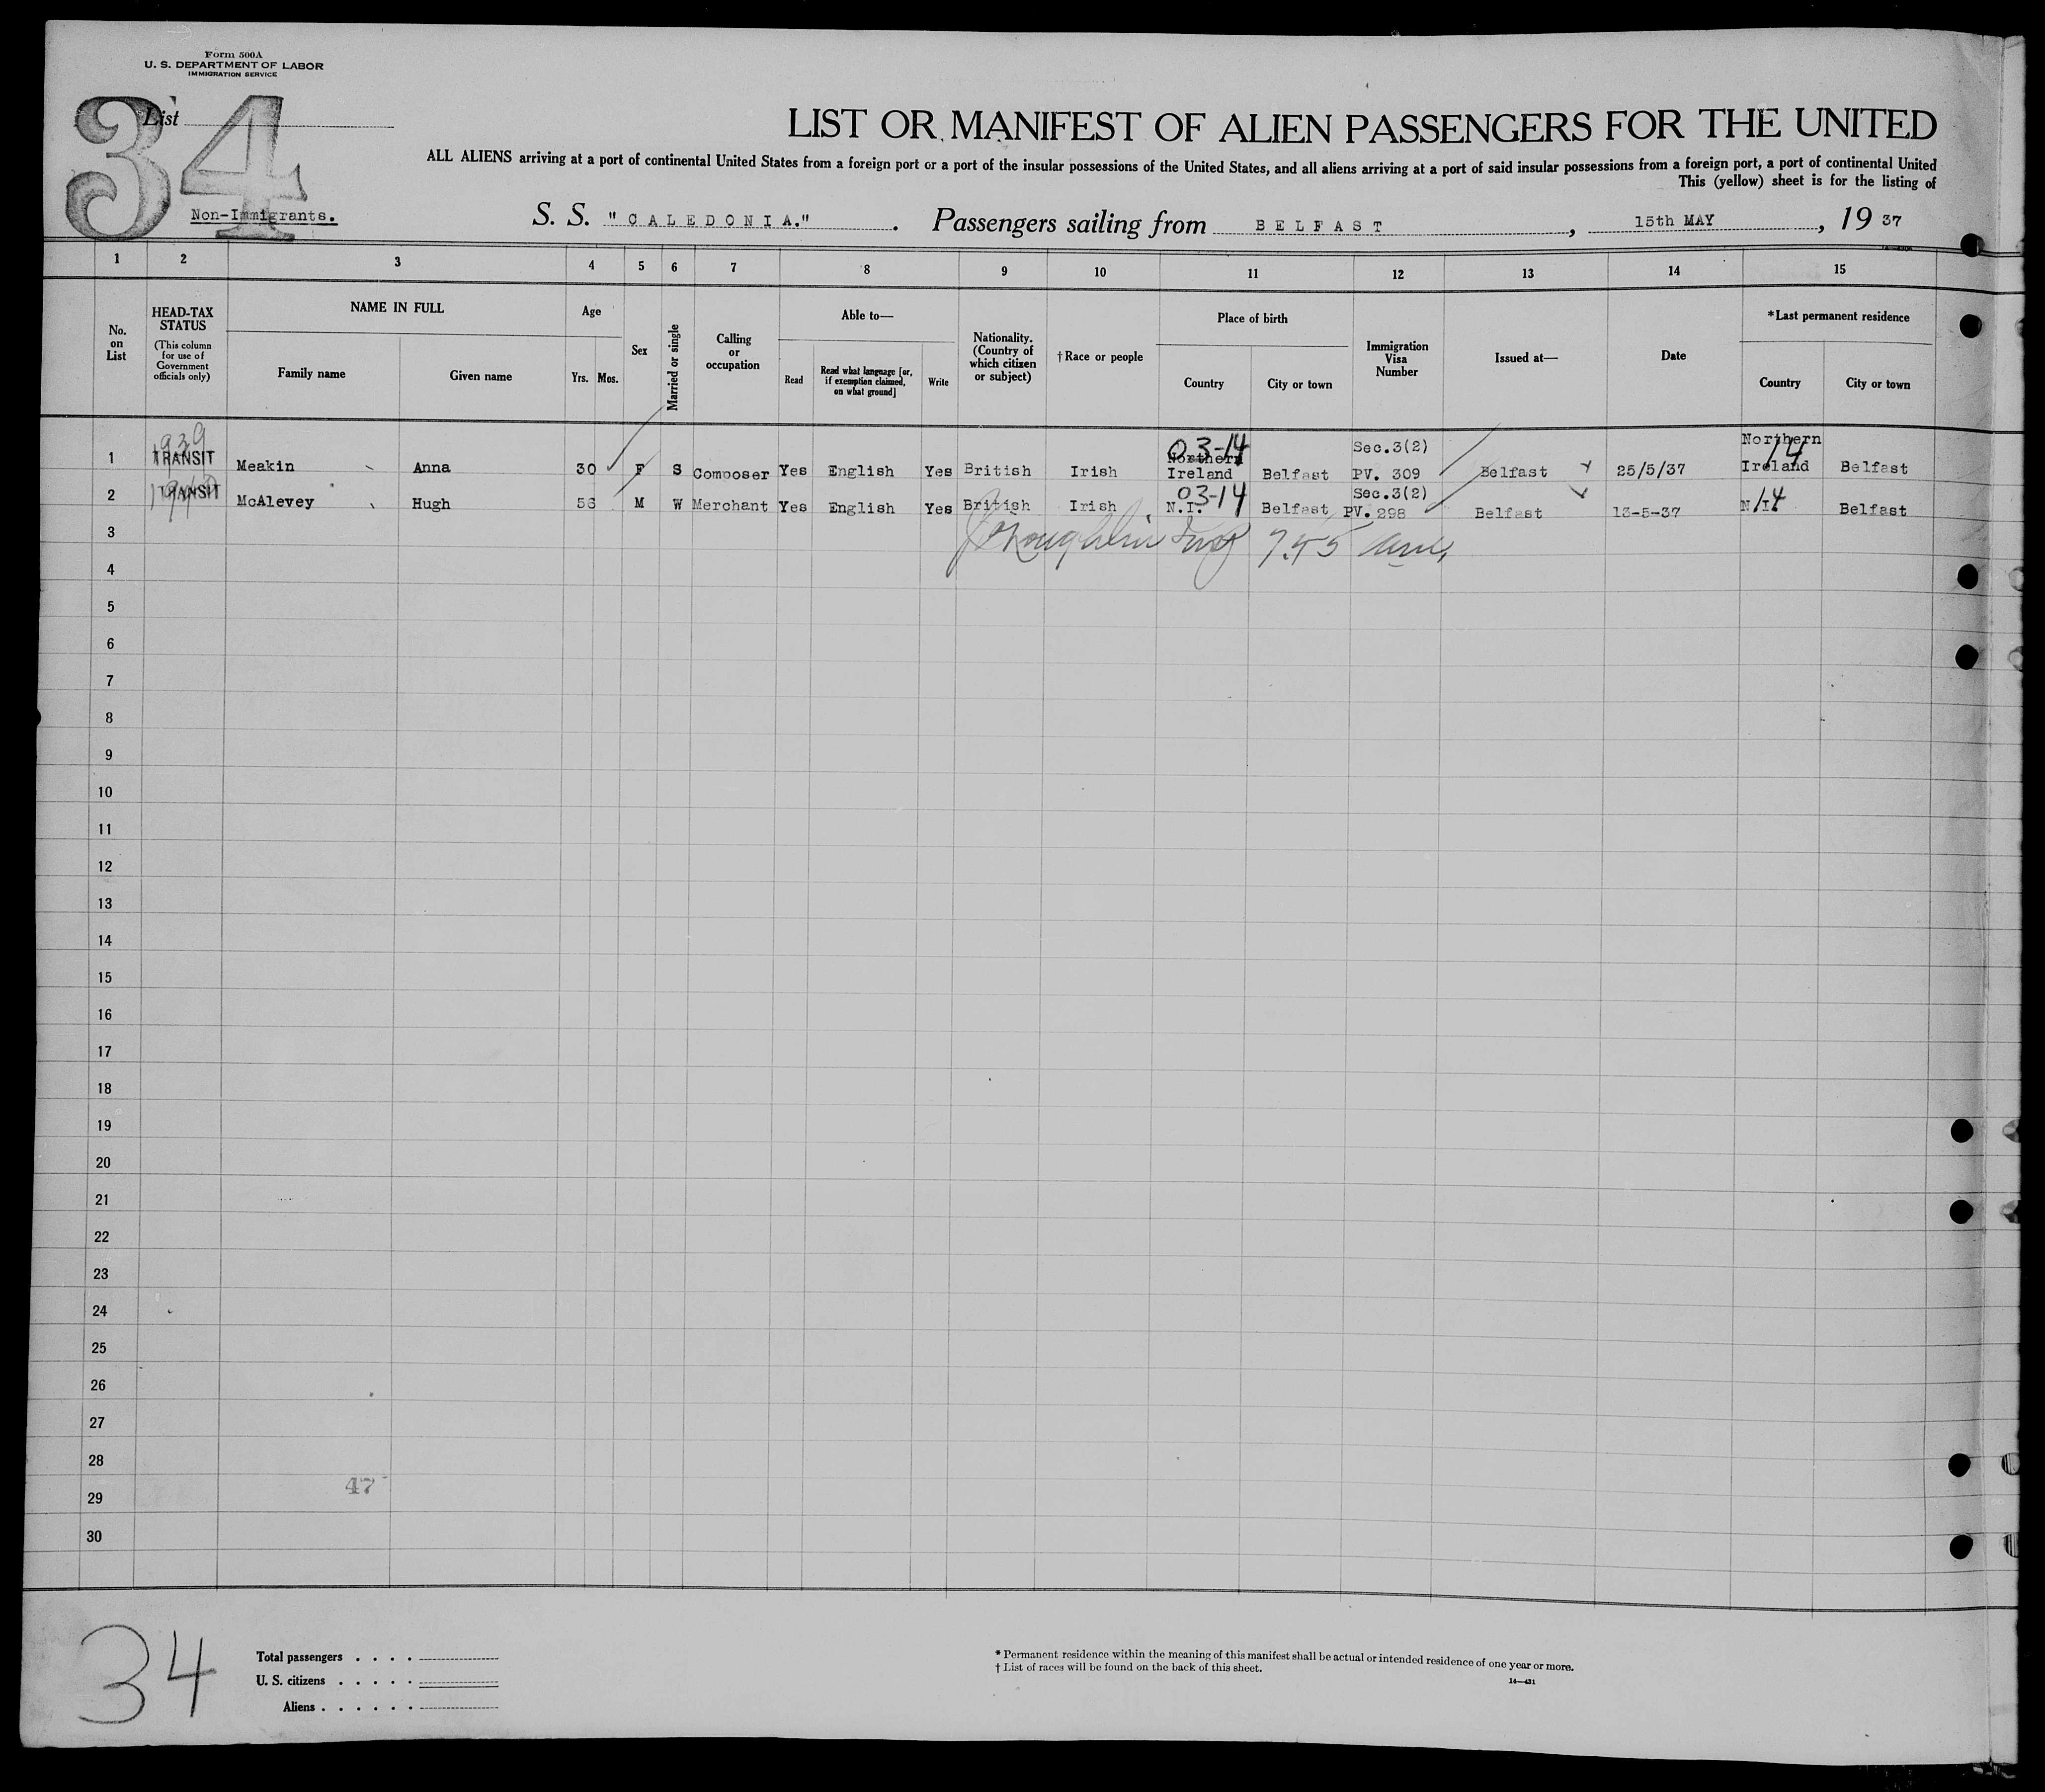 Form 500A
U. S. DEPARTMENT OF LABOR
IMMIGRATION SERVICE
34
List
LIST OR MANIFEST OF ALIEN PASSENGERS FOR THE UNITED
ALL ALIENS arriving at a port of continental United States from a foreign port or a port of the insular possessions of the United States, and all aliens arriving at a port of said insular possessions from a foreign port, a port of continental United
This (yellow) sheet is for the listing of
Non-Immigrants.
S. S. "CALEDONIA." . Passengers sailing from BELFAST , 15th MAY , 19 37
1 2 3 4 5 6 7 8 9 10 11 12 13 14 15
No. on List
HEAD-TAX STATUS (This column for use of Government officials only)
NAME IN FULL
Family name
Given name
Age
Yrs. Mos.
Sex
Married or single
Calling or occupation
Able to—
Read
Read what language [or, if exemption claimed, on what ground]
Write
Nationality. (Country of which citizen or subject)
† Race or people
Place of birth
Country
City or town
Immigration Visa Number
Issued at—
Date
*Last permanent residence
Country
City or town
1 TRANSIT Meakin Anna 30 F S Composer Yes English Yes British Irish 03-14 Northern Ireland Belfast Sec.3(2) PV. 309 Belfast 25/5/37 Northern Ireland 14 Belfast
2 TRANSIT McAlevey Hugh M W Merchant Yes English Yes British Irish 03-14 N.I. Belfast Sec.3(2) PV. 298 Belfast 13-5-37 N.I. 14 Belfast
3
4
5
6
7
8
9
10
11
12
13
14
15
16
17
18
19
20
21
22
23
24
25
26
27
28
47
29
30
34
Total passengers . . . .
U. S. citizens . . . . .
Aliens . . . . . .
* Permanent residence within the meaning of this manifest shall be actual or intended residence of one year or more.
† List of races will be found on the back of this sheet.
14—431